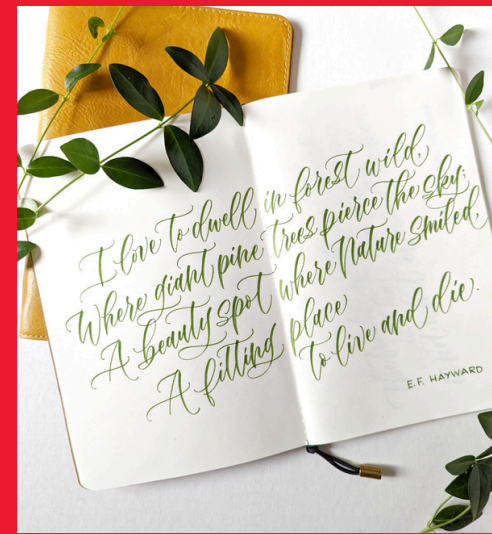 I love to dwell in forest wild,
Where giant pine trees pierce the sky;
A beauty spot where Nature smiled,
A fitting place to live and die.
E.F. HAYWARD